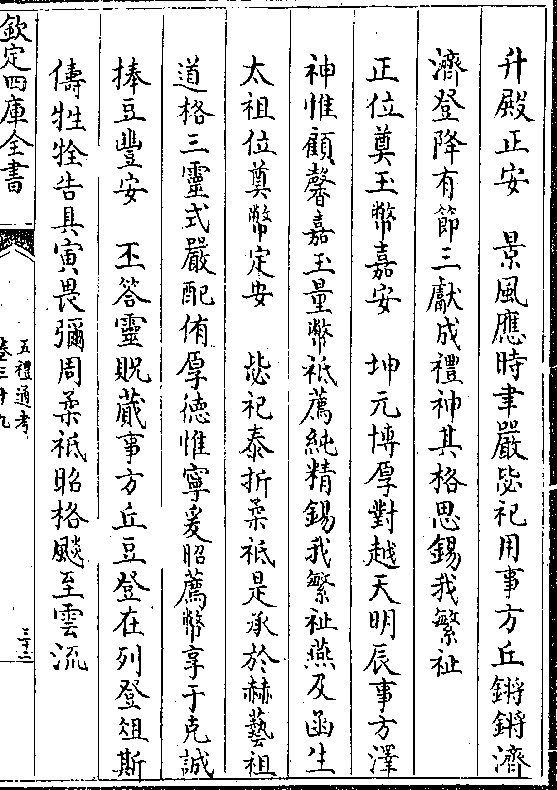 升殿正安　景風應時聿嚴毖祀用事方丘鏘鏘濟
濟登降有節三獻成禮神其格思錫我繁祉
正位奠玉幣嘉安　坤元博厚對越天明辰事方澤
神惟顧馨嘉玉量幣祇薦純精錫我繁祉燕及函生
太祖位奠幣定安　毖祀泰折柔祇是承於赫藝祖
道格三靈式嚴配侑厚德惟寧爰昭薦幣享于克誠
捧豆豐安　丕答靈貺蕆事方丘豆登在列登俎斯
儔牲牷告具寅畏彌周柔祇昭格飈至雲流
欽定四庫全書
五禮通考
卷三十九
三十二